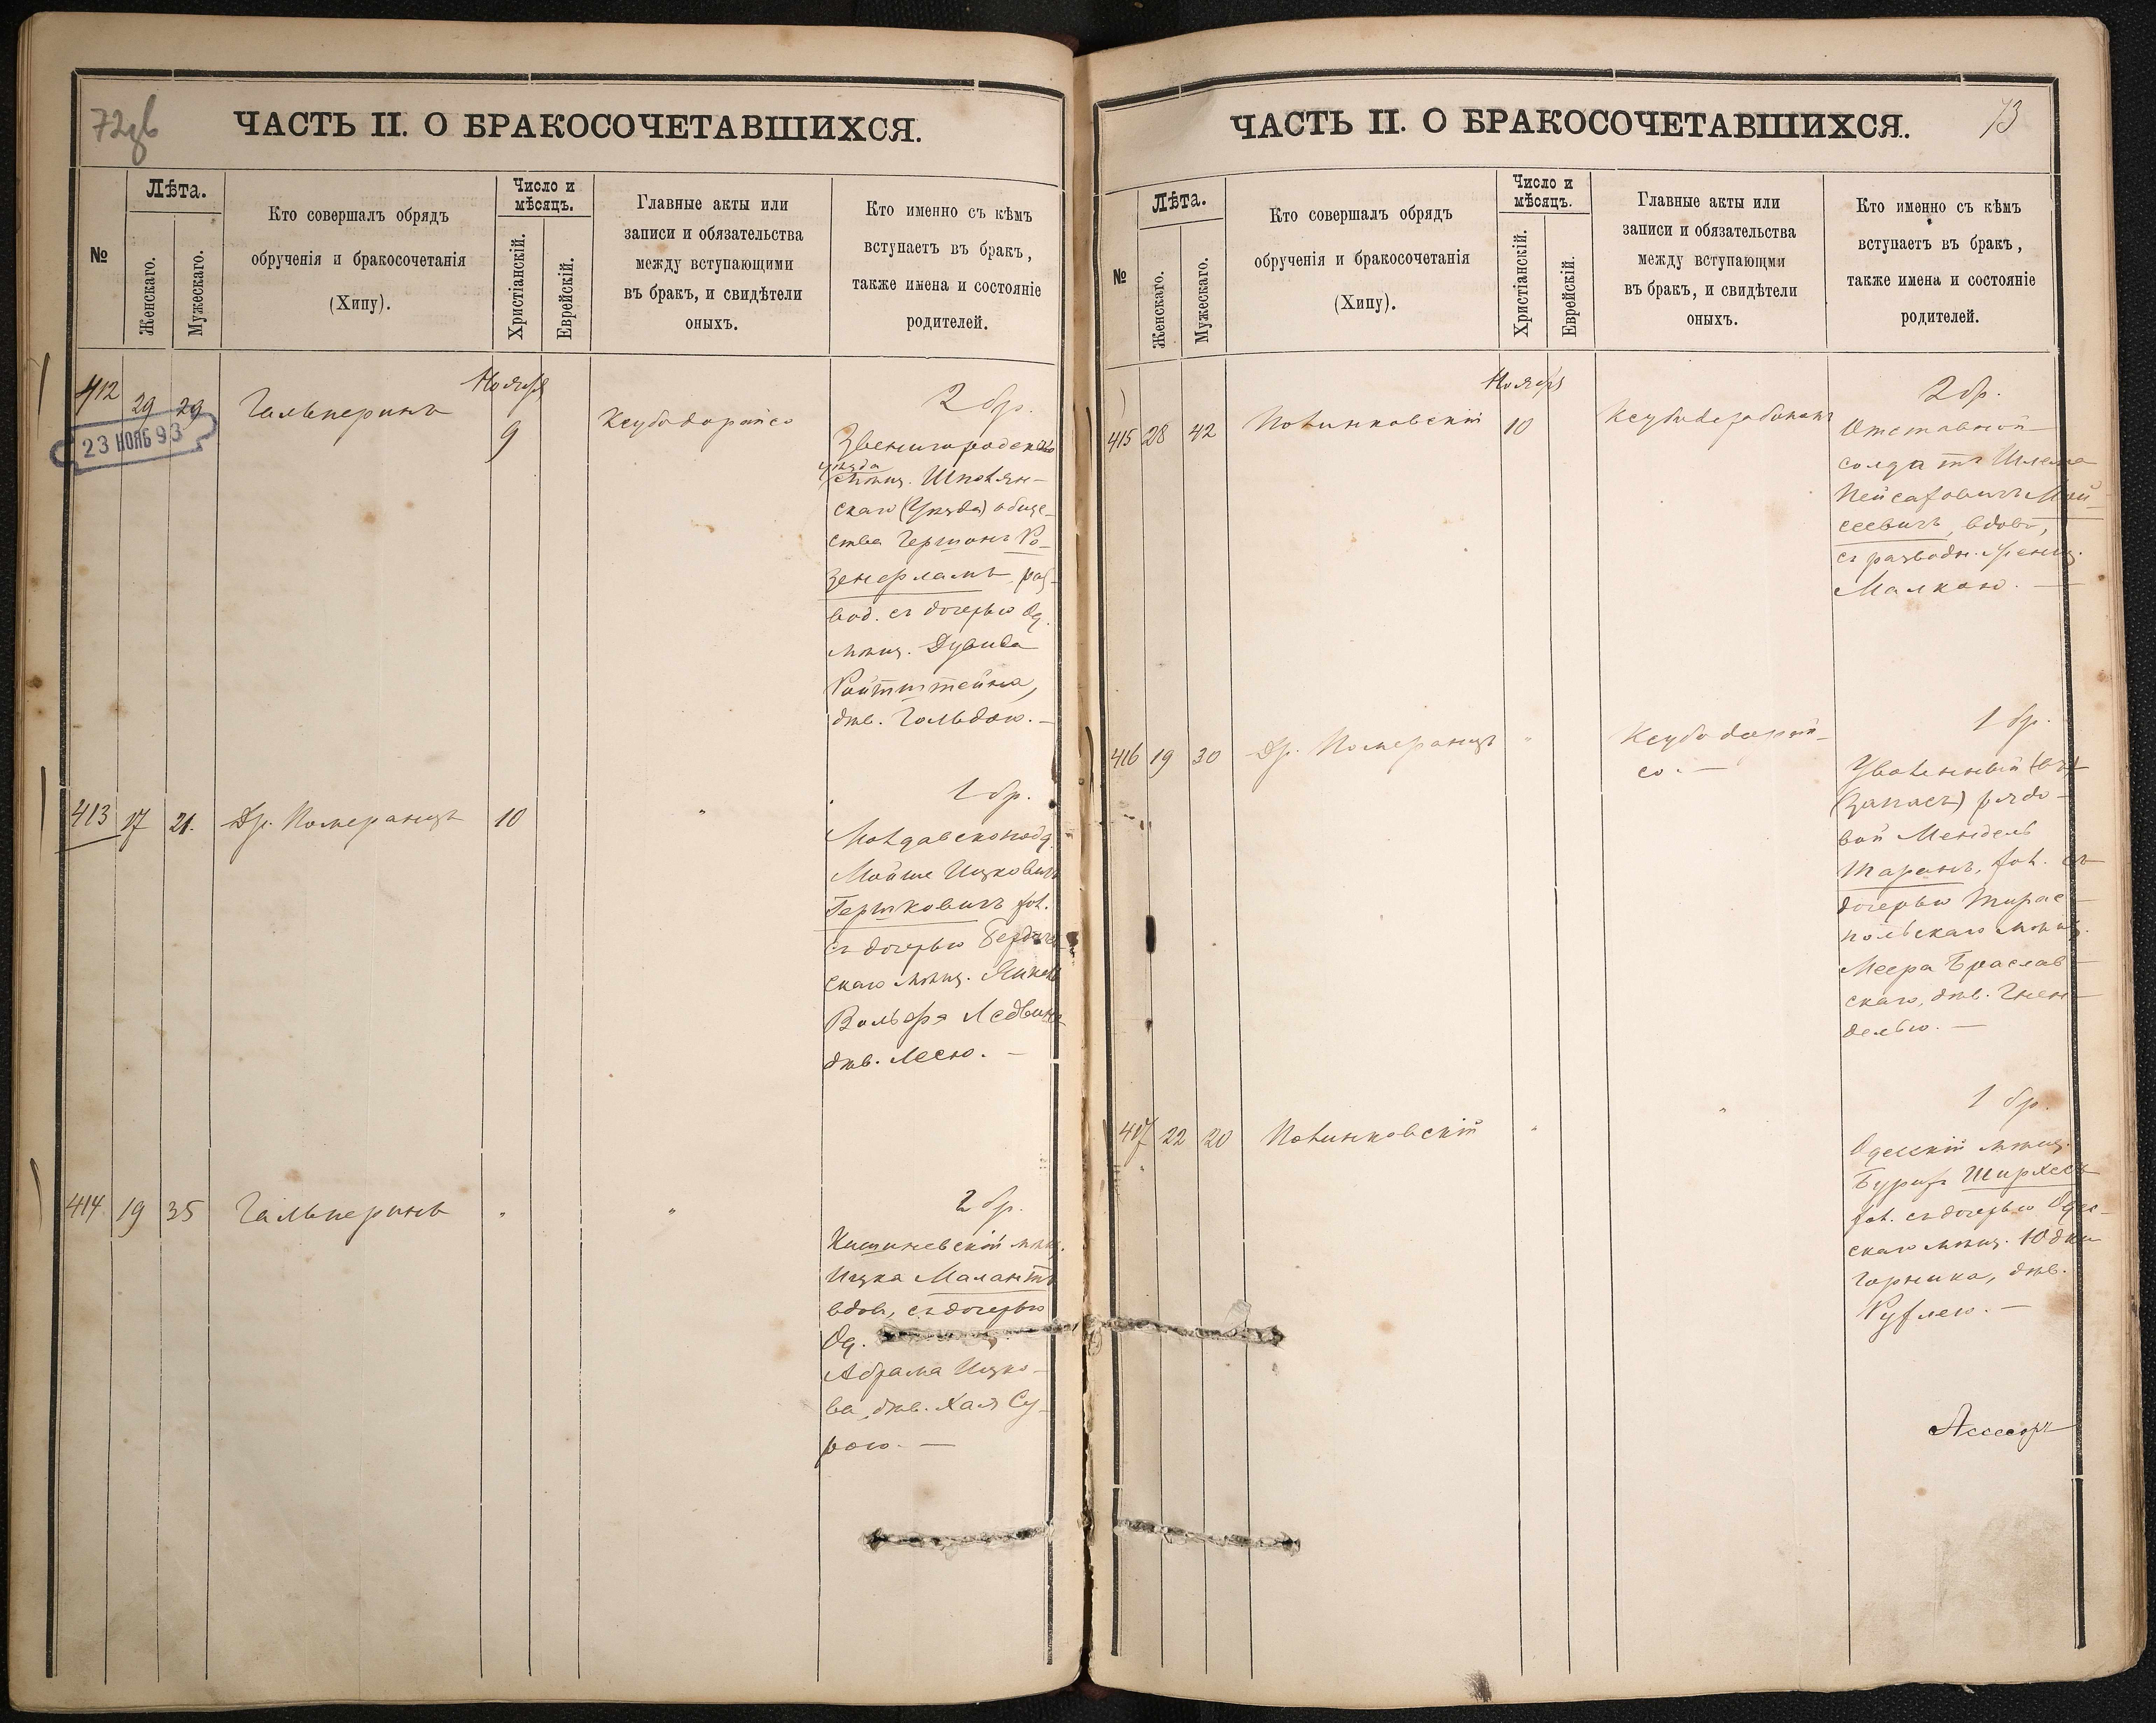 72об
ЧАСТЬ II. О БРАКОСОЧЕТАВШИХСЯ.
№
Лѣта.
Женскаго.
Мужескаго.
Кто совершалъ обрядъ
обрученія и бракосочетанія
(Хипу).
Число и
мѣсяцъ.
Христіанскій.
Еврейскій.
Главные акты или
записи и обязательства
между вступающими
въ бракъ, и свидѣтели
оныхъ.
Кто именно съ кѣмъ
вступаетъ въ бракъ,
также имена и состояніе
родителей.
412 29 29 Гальперинъ Ноября 9 Ксубо дорайсо
23 НОЯБ 93
2 бр.
Звенигородскаго
уѣзда
мѣщ. Шполян-
скаго (Уѣзда) обще-
ства Гершонъ Ро-
зенфламъ, раз-
вод. съ дочерью Од.
мѣщ. Дувида
Ройтштейна,
дѣв. Гольдою. —
413 17 21. Др. Померанцъ 10 "
1 бр.
Молдавскоподд.
Мойше Ицковичъ
Гершковичъ хол.
съ дочерью Бердичев
скаго мѣщ.
Вольфа Ледвина
дѣв. Лесю. —
414 19 35 Гальперинъ " "
2 бр.
Кишиневскій мѣщ.
Ицка Малантъ
вдов, съ дочерью
Од.
Абрама Ицко-
ва, дѣв. Хая Су-
рою. —
73
ЧАСТЬ II. О БРАКОСОЧЕТАВШИХСЯ.
№
Лѣта.
Женскаго.
Мужескаго.
Кто совершалъ обрядъ
обрученія и бракосочетанія
(Хипу).
Число и
мѣсяцъ.
Христіанскій.
Еврейскій.
Главные акты или
записи и обязательства
между вступающими
въ бракъ, и свидѣтели
оныхъ.
Кто именно съ кѣмъ
вступаетъ въ бракъ,
также имена и состояніе
родителей.
415 28 42 Полинковскій Ноября 10 Ксубо дерабонанъ
2 бр.
Отставной
солдатъ Шлема
Пейсаховичъ Мой-
сеевичъ, вдовъ,
съ разводн. женщ.
Малкою. —
416 19 30 Др. Померанцъ " Ксубо дорай-
со. —
1 бр.
Уволенный (въ
(запасъ) рядо-
вой Мендель
Таранъ, хол. съ
дочерью Тирас-
польскаго мѣщ.
Меера Браслав-
скаго, дѣв. Гнен-
делью. —
417 22 20 Полинковскій " "
1 бр.
Одесскій мѣщ.
Бурихъ Ширхесъ
хол. съ дочерью Одес-
скаго мѣщ. Юдки
Горника, дѣв.
Рухлею. —
Ассесоръ